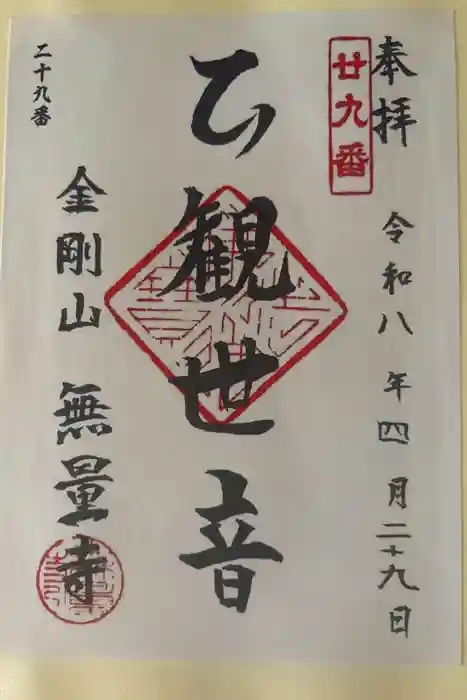 奉拝
令和八年四月二十九日
廿九番
観世音
二十九番
金剛山 無量寺